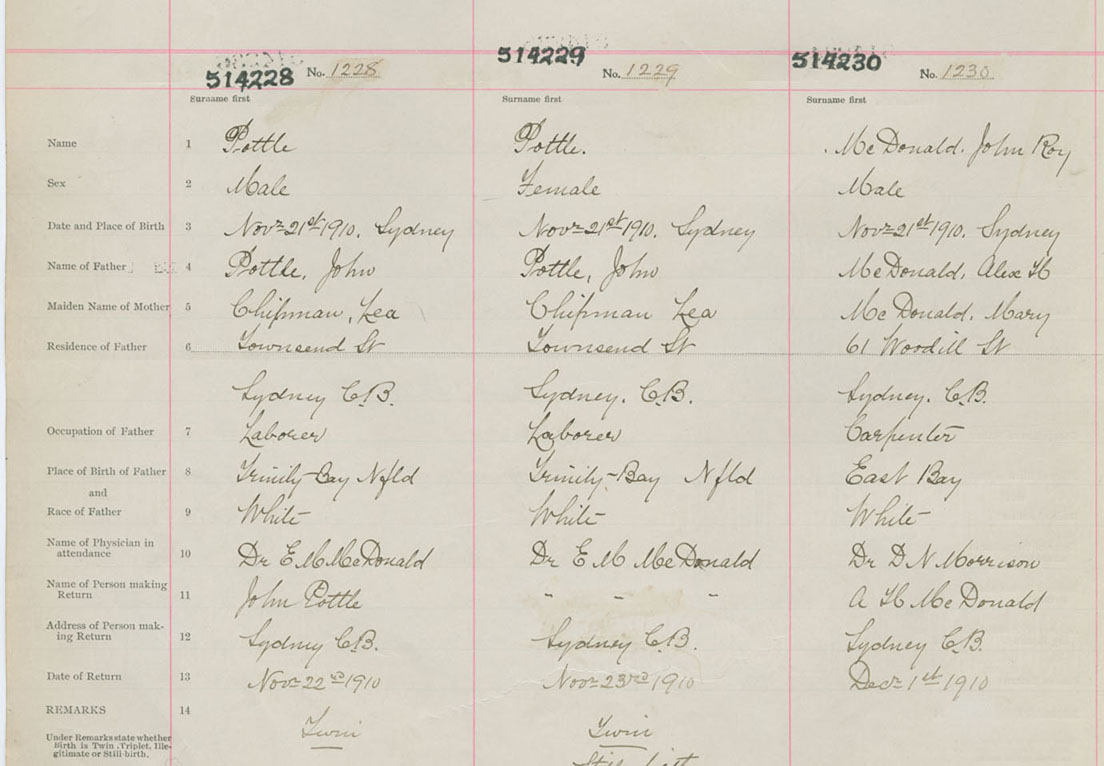 514228 No. 1228 514229 No. 1229 514230 No. 1230
Surname first Surname first Surname first
Name 1 Pottle Pottle. McDonald. John Roy
Sex 2 Male Female Male
Date and Place of Birth 3 Novr 21st 1910. Sydney Novr 21st 1910. Sydney Novr 21st 1910. Sydney
Name of Father 4 Pottle, John Pottle, John McDonald, Alex H
Maiden Name of Mother 5 Chipman, Lea Chipman Lea McDonald, Mary
Residence of Father 6 Townsend St Townsend St 61 Woodill St
Sydney C.B. Sydney. C.B. Sydney. C.B.
Occupation of Father 7 Laborer Laborer Carpenter
Place of Birth of Father 8 Trinity-Bay Nfld Trinity-Bay Nfld East Bay
and
Race of Father 9 White White White
Name of Physician in
attendance 10 Dr E M McDonald Dr E M McDonald Dr D N Morrison
Name of Person making
Return 11 John Pottle " " " A H McDonald
Address of Person mak-
ing Return 12 Sydney C.B. Sydney C.B. Sydney C.B.
Date of Return 13 Novr 22nd 1910 Novr 23rd 1910 Decr 1st 1910
REMARKS 14 Twin Twin
Under Remarks state whether
Birth is Twin, Triplet, Ille-
gitimate or Still-birth.